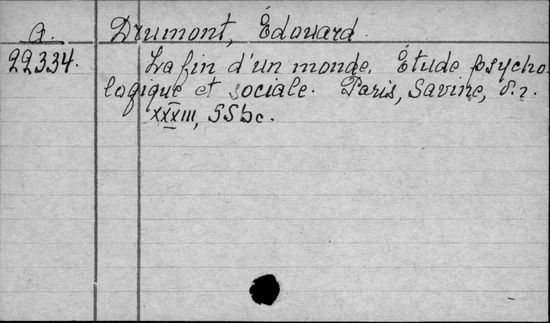 A. Drumont, Édouard.
22334. La fin d'un monde. Étude psycho-
logique et sociale. Paris, Savine, s.a.
XXXIII, 556c.